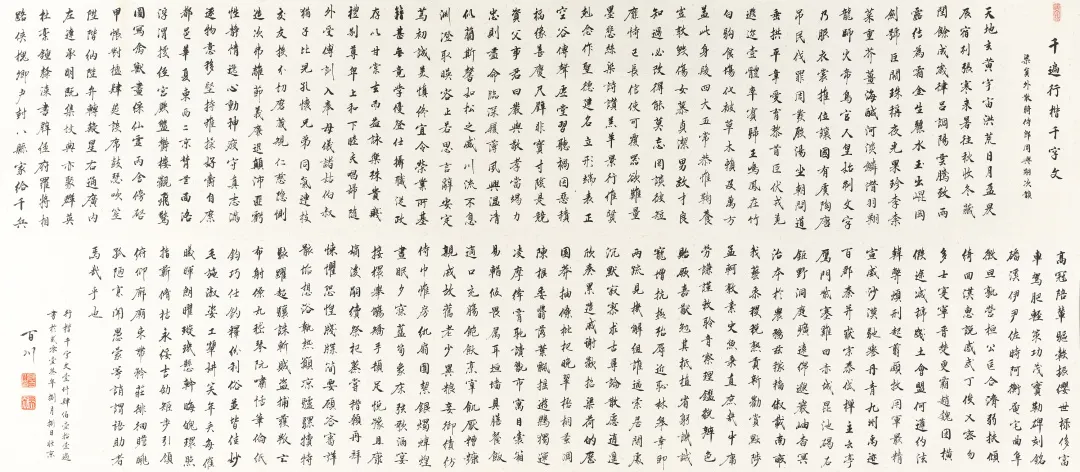 千遍行楷千字文
梁員外散騎侍郎周興嗣次韻
天地玄黃宇宙洪荒日月盈昃
辰宿列張寒來暑往秋收冬藏
閏餘成歲律呂調陽雲騰致雨
露結為霜金生麗水玉出崐岡
劍號巨闕珠稱夜光果珍李柰
菜重芥薑海鹹河淡鱗潛羽翔
龍師火帝鳥官人皇始制文字
乃服衣裳推位讓國有虞陶唐
吊民伐罪周發殷湯坐朝問道
垂拱平章愛育黎首臣伏戎羌
遐邇壹體率賓歸王鳴鳳在竹
白駒食場化被草木賴及萬方
蓋此身髮四大五常恭惟鞠養
豈敢毀傷女慕貞潔男效才良
知過必改得能莫忘罔談彼短
靡恃己長信使可覆器欲難量
墨悲絲染詩讚羔羊景行維賢
剋念作聖德建名立形端表正
空谷傳聲虛堂習聽禍因惡積
福緣善慶尺璧非寶寸陰是競
資父事君曰嚴與敬孝當竭力
忠則盡命臨深履薄夙興溫凊
似蘭斯馨如松之盛川流不息
淵澄取映容止若思言辭安定
篤初誠美慎終宜令榮業所基
籍甚無竟學優登仕攝職從政
存以甘棠去而益詠樂殊貴賤
禮別尊卑上和下睦夫唱婦隨
外受傅訓入奉母儀諸姑伯叔
猶子比兒孔懷兄弟同氣連枝
交友投分切磨箴規仁慈隱惻
造次弗離節義廉退顛沛匪虧
性靜情逸心動神疲守真志滿
逐物意移堅持雅操好爵自縻
都邑華夏東西二京背邙面洛
浮渭據涇宮殿盤鬱樓觀飛驚
圖寫禽獸畫彩仙靈丙舍傍啟
甲帳對楹肆筵設席鼓瑟吹笙
陞階納陛弁轉疑星右通廣內
左達承明既集墳典亦聚群英
杜稾鍾隸漆書壁經府羅將相
路俠槐卿戶封八縣家給千兵
高冠陪輦驅轂振纓世祿侈富
車駕肥輕策功茂實勒碑刻銘
磻溪伊尹佐時阿衡奄宅曲阜
微旦孰營桓公匡合濟弱扶傾
綺回漢惠說感武丁俊乂密勿
多士寔寧晉楚更霸趙魏困橫
假途滅虢踐土會盟何遵約法
韓弊煩刑起翦頗牧用軍最精
宣威沙漠馳譽丹青九州禹迹
百郡秦并嶽宗泰岱禪主云亭
雁門紫塞雞田赤城昆池碣石
鉅野洞庭曠遠綿邈巖岫杳冥
治本於農務茲稼穡俶載南畝
我藝黍稷稅熟貢新勸賞黜陟
孟軻敦素史魚秉直庶幾中庸
勞謙謹敕聆音察理鑑貌辨色
貽厥嘉猷勉其祗植省躬譏誡
寵增抗極殆辱近恥林皋幸即
兩疏見機解組誰逼索居閒處
沉默寂寥求古尋論散慮逍遙
欣奏累遣慼謝歡招渠荷的歷
園莽抽條枇杷晚翠梧桐蚤凋
陳根委翳落葉飄搖遊鵾獨運
凌摩絳霄耽讀翫市寓目囊箱
易輶攸畏屬耳垣牆具膳餐飯
適口充腸飽飫烹宰飢厭糟糠
親戚故舊老少異糧妾御績紡
侍巾帷房紈扇圓潔銀燭煒煌
晝眠夕寐藍筍象床弦歌酒宴
接杯舉觴矯手頓足悅豫且康
嫡後嗣續祭祀蒸嘗稽顙再拜
悚懼恐惶牋牒簡要顧答審詳
骸垢想浴執熱願涼驢騾犢特
駭躍超驤誅斬賊盜捕獲叛亡
布射僚丸嵇琴阮嘯恬筆倫紙
鈞巧任釣釋紛利俗並皆佳妙
毛施淑姿工顰妍笑年矢每催
曦暉朗曜璇璣懸斡晦魄環照
指薪修祜永綏吉劭矩步引領
俯仰廊廟束帶矜莊徘徊瞻眺
孤陋寡聞愚蒙等誚謂語助者
焉哉乎也
行楷千字文壹仟肆佰壹拾壹遍
百川